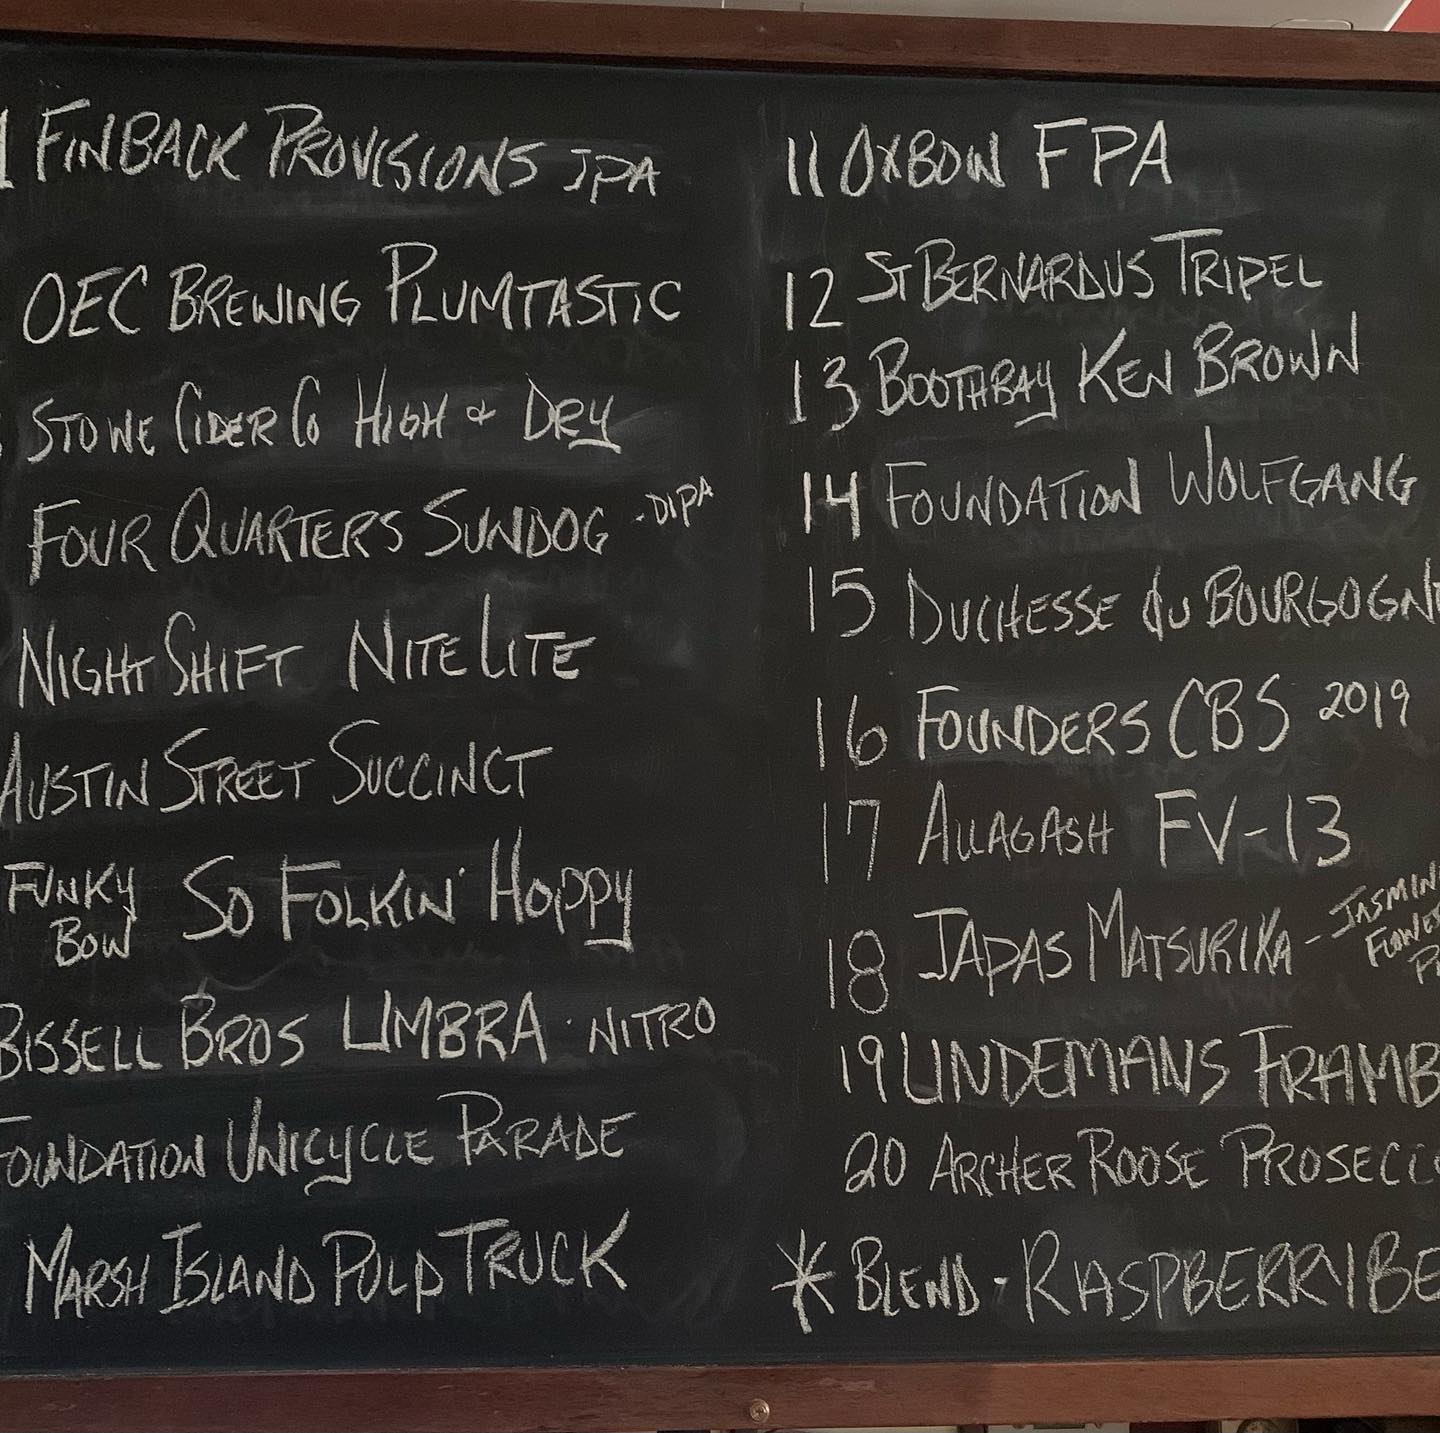 1 FINBACK PROVISIONS IPA
OEC BREWING PLUMTASTIC
STOWE CIDER CO HIGH & DRY
FOUR QUARTERS SUNDOG - DIPA
NIGHT SHIFT NITE LITE
AUSTIN STREET SUCCINCT
FUNKY BOW SO FOLKIN' HOPPY
BISSELL BROS UMBRA · NITRO
FOUNDATION UNICYCLE PARADE
MARSH ISLAND PULP TRUCK
11 OXBOW FPA
12 ST BERNARDUS TRIPEL
13 BOOTHBAY KEN BROWN
14 FOUNDATION WOLFGANG
15 DUCHESSE du BOURGOGN
16 FOUNDERS CBS 2019
17 ALLAGASH FV-13
18 JAPAS MATSURIKA - JASMIN
FLOWE
19 LINDEMANS FRAMB
20 ARCHER ROOSE PROSECCO
* BLEND - RASPBERRI BE